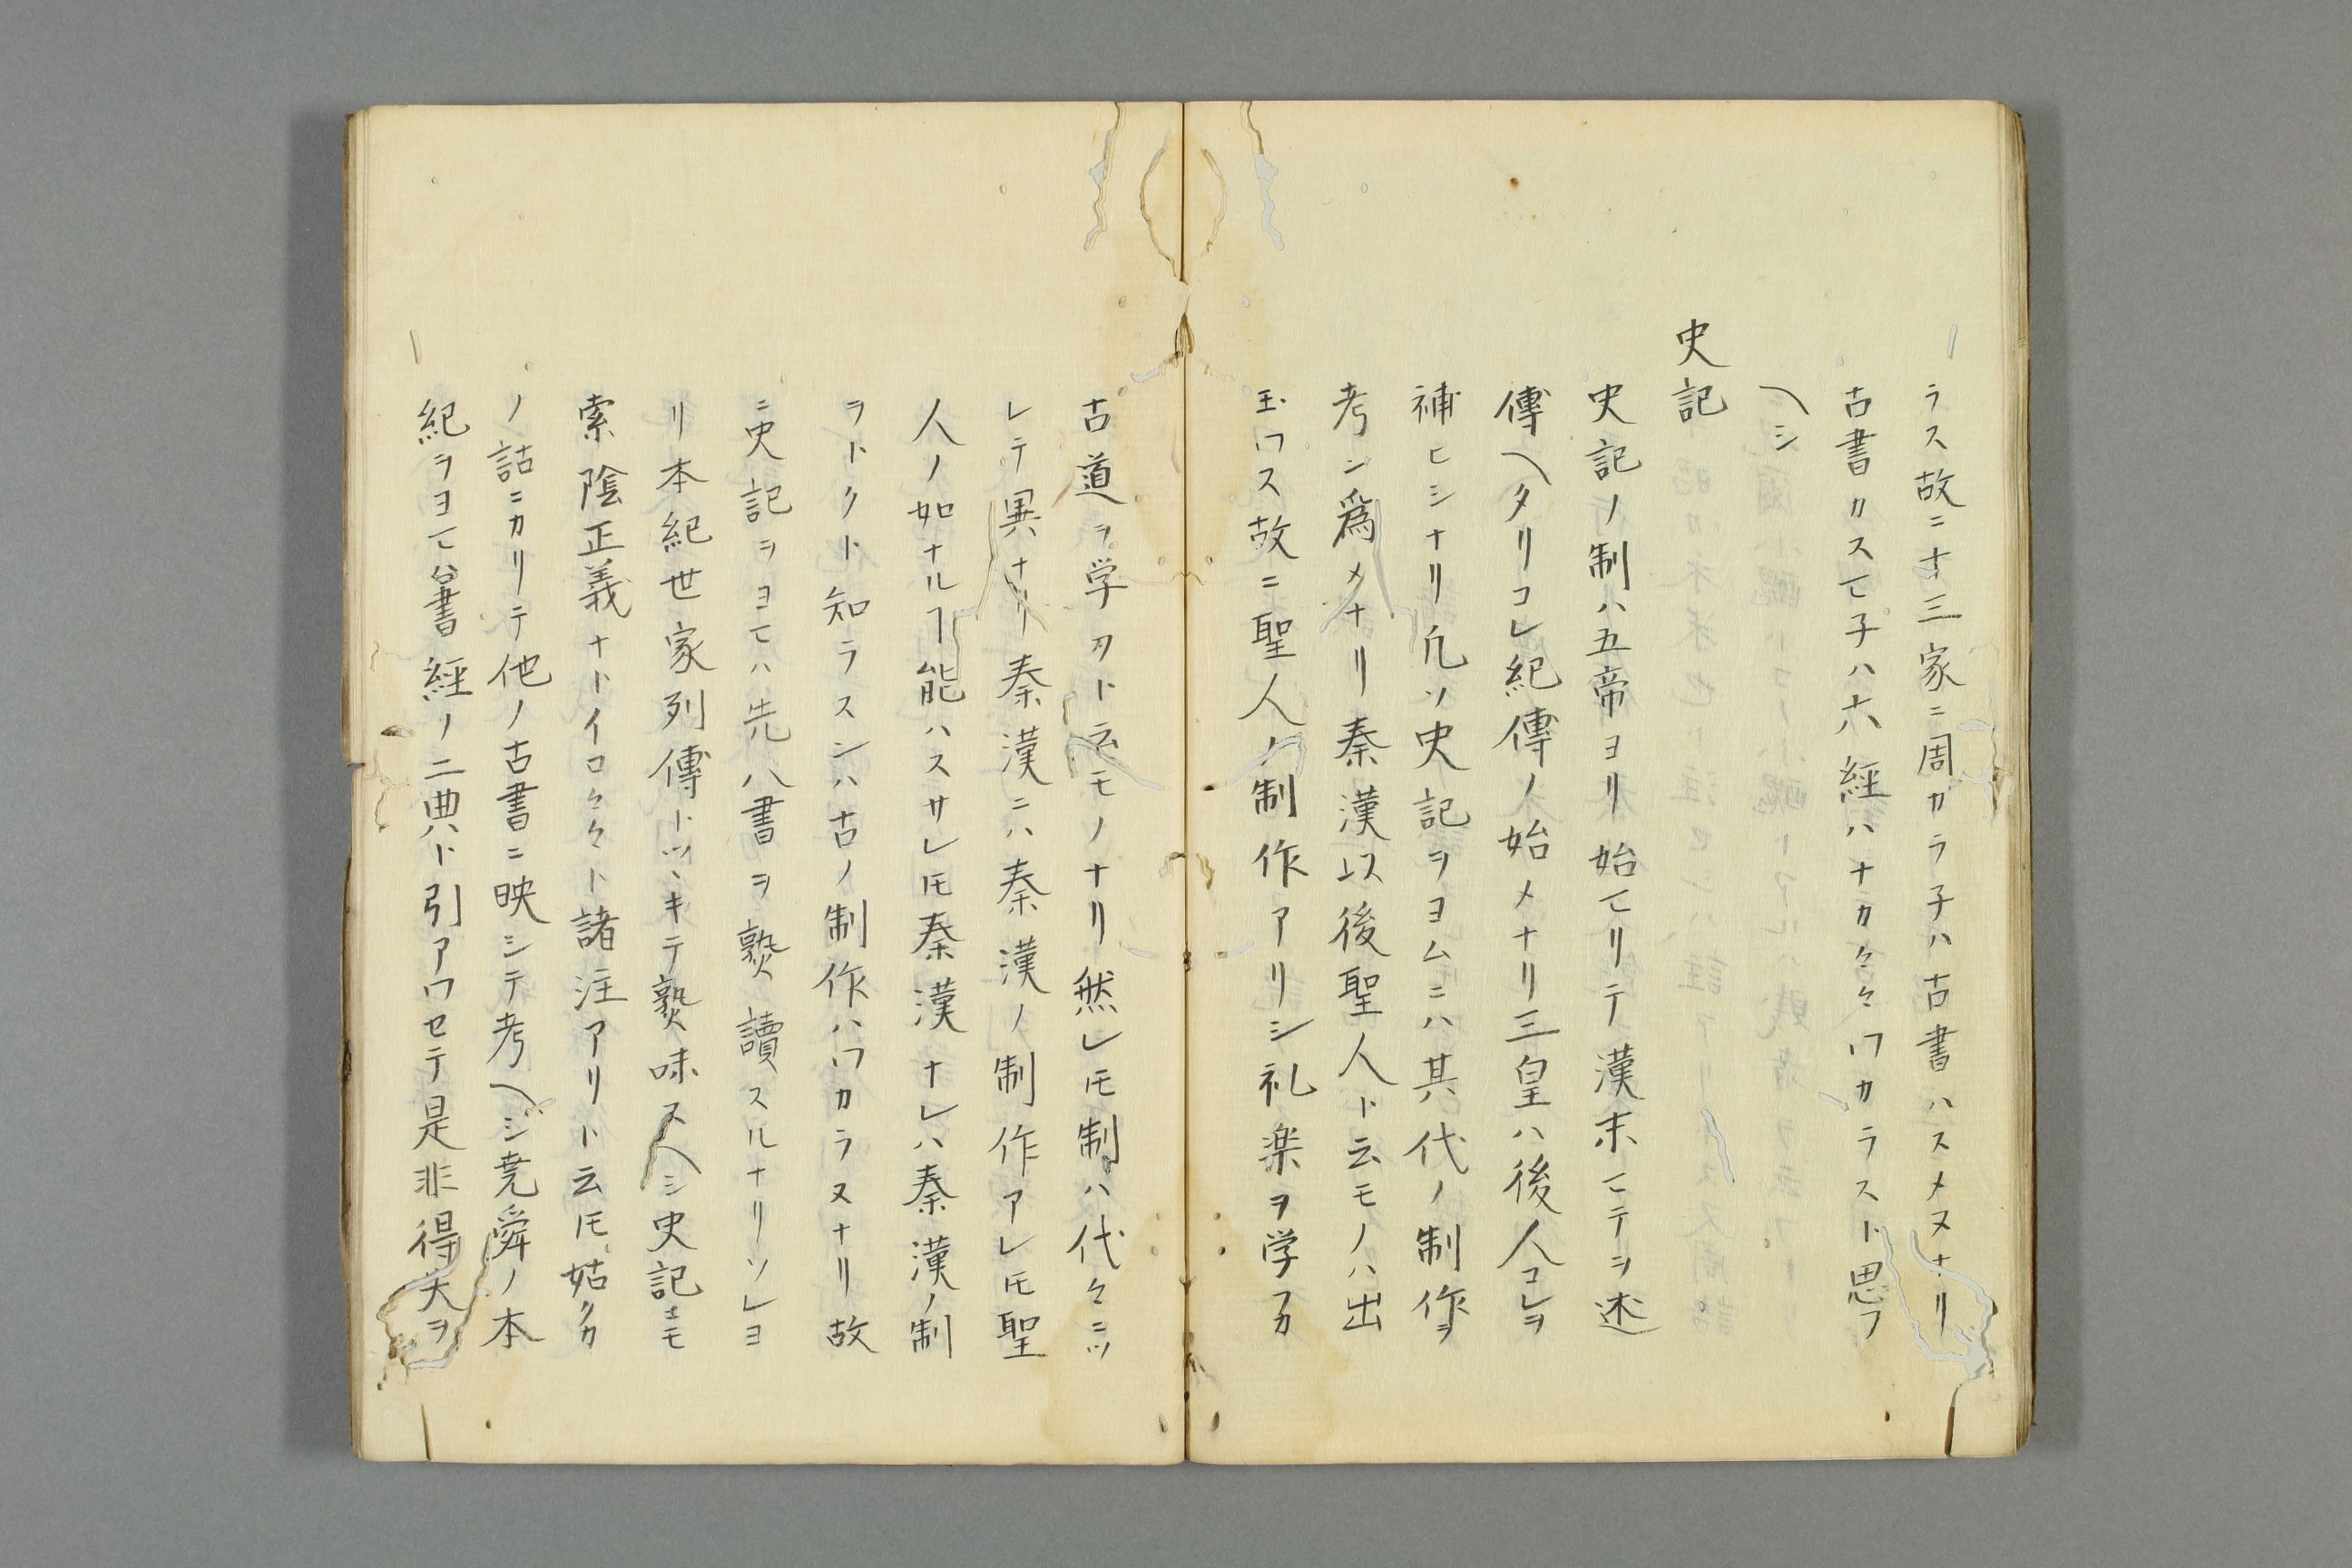 ラス故ニ十三家ニ周カラ子ハ古書ハスメヌナリ
古書カスマ子ハ六経ハナカ〱ワカラスト思フ
ヘシ
史記
史記ノ制ハ五帝ヨリ始マリテ漢末マテヲ述
傳ヘタリコレ紀傳ノ始メナリ三皇ハ後人コレヲ
補ヒシナリ凡ソ史記ヲヨムニハ其代ノ制作ヲ
考ン為メナリ秦漢以後聖人ト云モノハ出
玉ワス故ニ聖人ノ制作アリシ礼楽ヲ学フカ
古道ヲ学フト云モノナリ然レ𪜈制ハ代々ニツ
レテ異ナリ秦漢ニハ秦漢ノ制作アレ𪜈聖
人ノ如ナルヿ能ハスサレ𪜈秦漢ナレハ秦漢ノ制
ヲトクト知ラスンハ古ノ制作ハワカラヌナリ故
ニ史記ヲヨマハ先八書ヲ熟讀スルナリソレヨ
リ本紀世家列傳トツヽキテ熟味スヘシ史記ニモ
索隱正義ナトイロ〱ト諸注アリト云𪜈姑クカ
ノ詁ニカリテ他ノ古書ニ映シテ考ヘシ堯舜ノ本
紀ヲヨマハ書經ノ二典ト引アワセテ是非得失ヲ